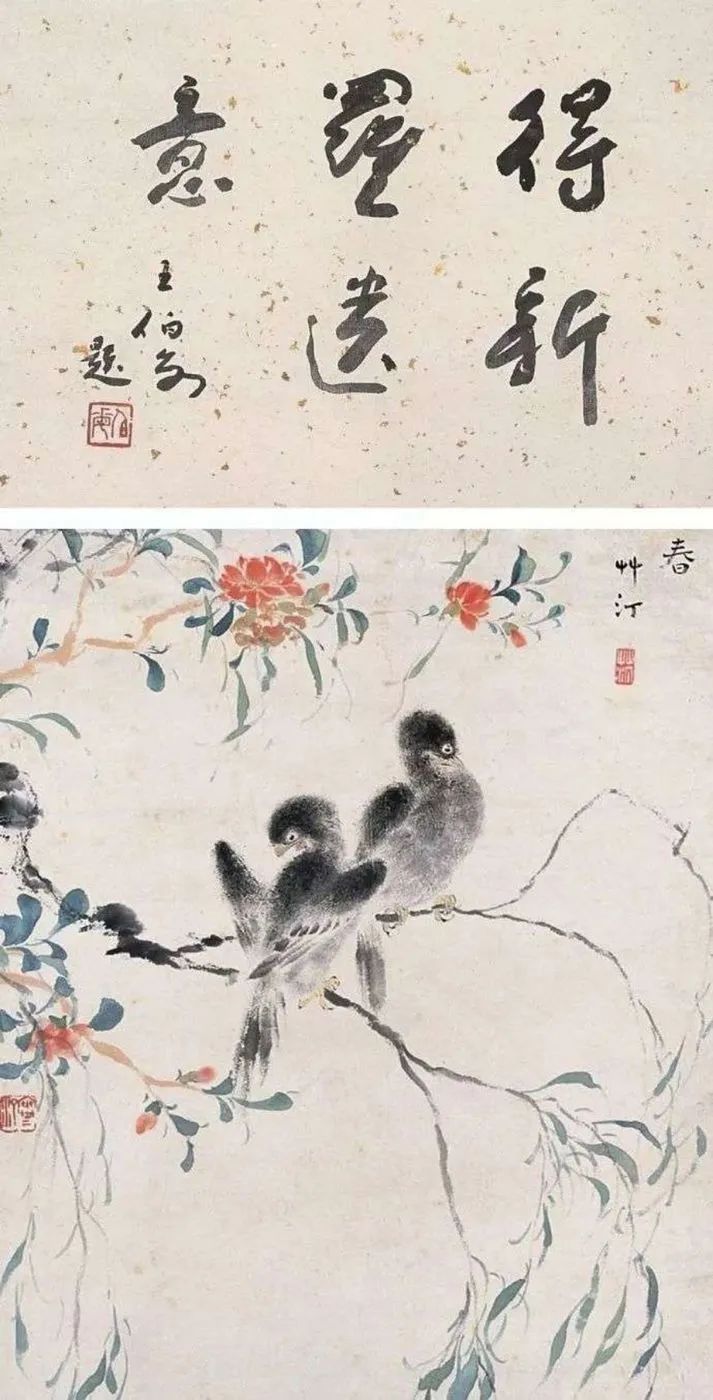 得新
羅遺
意
王伯敏
題
春
艸汀